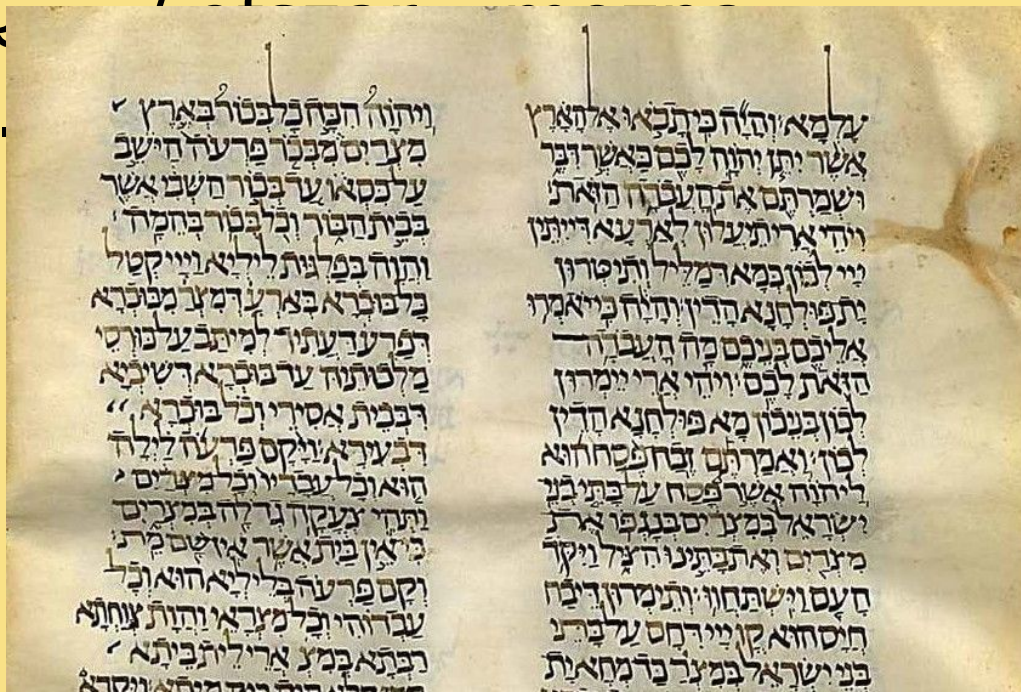 עלמא והיה כי תבאו אל הארץ
אשר יתן יהוה לכם כאשר דבר
ושמרתם את העבדה הזאת׃
ויהי ארי תיעלון לארעא דייתין
ייי לכון כמא דמליל ותיטרון
ית פולחנא הדין׃ והיה כי יאמרו
אליכם בניכם מה העבדה
הזאת לכם׃ ויהי ארי יימרון
לכון בניכון מא פולחנא הדין
לכון׃ ואמרתם זבח פסח הוא
ליהוה אשר פסח על בתי בני
ישראל במצרים בנגפו את
מצרים ואת בתינו הציל ויקד
העם וישתחוו׃ ותימרון דיבח
חייס הוא ייי דחס על בתי
בני ישראל במצר כד מחא ית
ויהוה הכה כל בכור בארץ
מצרים מבכר פרעה הישב
על כסאו עד בכור השבי אשר
בבית הבור וכל בכור בהמה׃
והוה בפלגות ליליא וייי קטל
כל בוכרא בארע דמצר מבוכרא
דפרעה דעתיד למיתב על כורסי
מלכותיה עד בוכרא דשיביא
דבבית אסירי וכל בוכרא
דבעירא׃ ויקם פרעה לילה
הוא וכל עבדיו וכל מצרים
ותהי צעקה גדלה במצרים
כי אין בית אשר אין שם מת׃
וקם פרעה בליליא הוא וכל
עבדוהי וכל מצראי והות צוחתא
רבתא במצ ארי לית ביתא